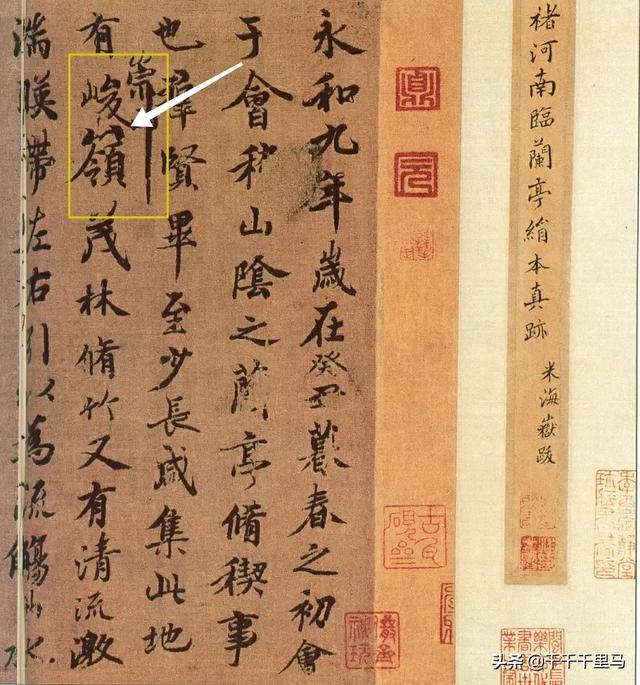 褚河南臨蘭亭絹本真跡
米海嶽跋
永和九年歲在癸丑暮春之初會
于會稽山陰之蘭亭脩稧事
也羣賢畢至少長咸集此地
有崇山峻嶺茂林脩竹又有清流激
湍暎帶左右引以為流觴曲水
头条 @千千千里马